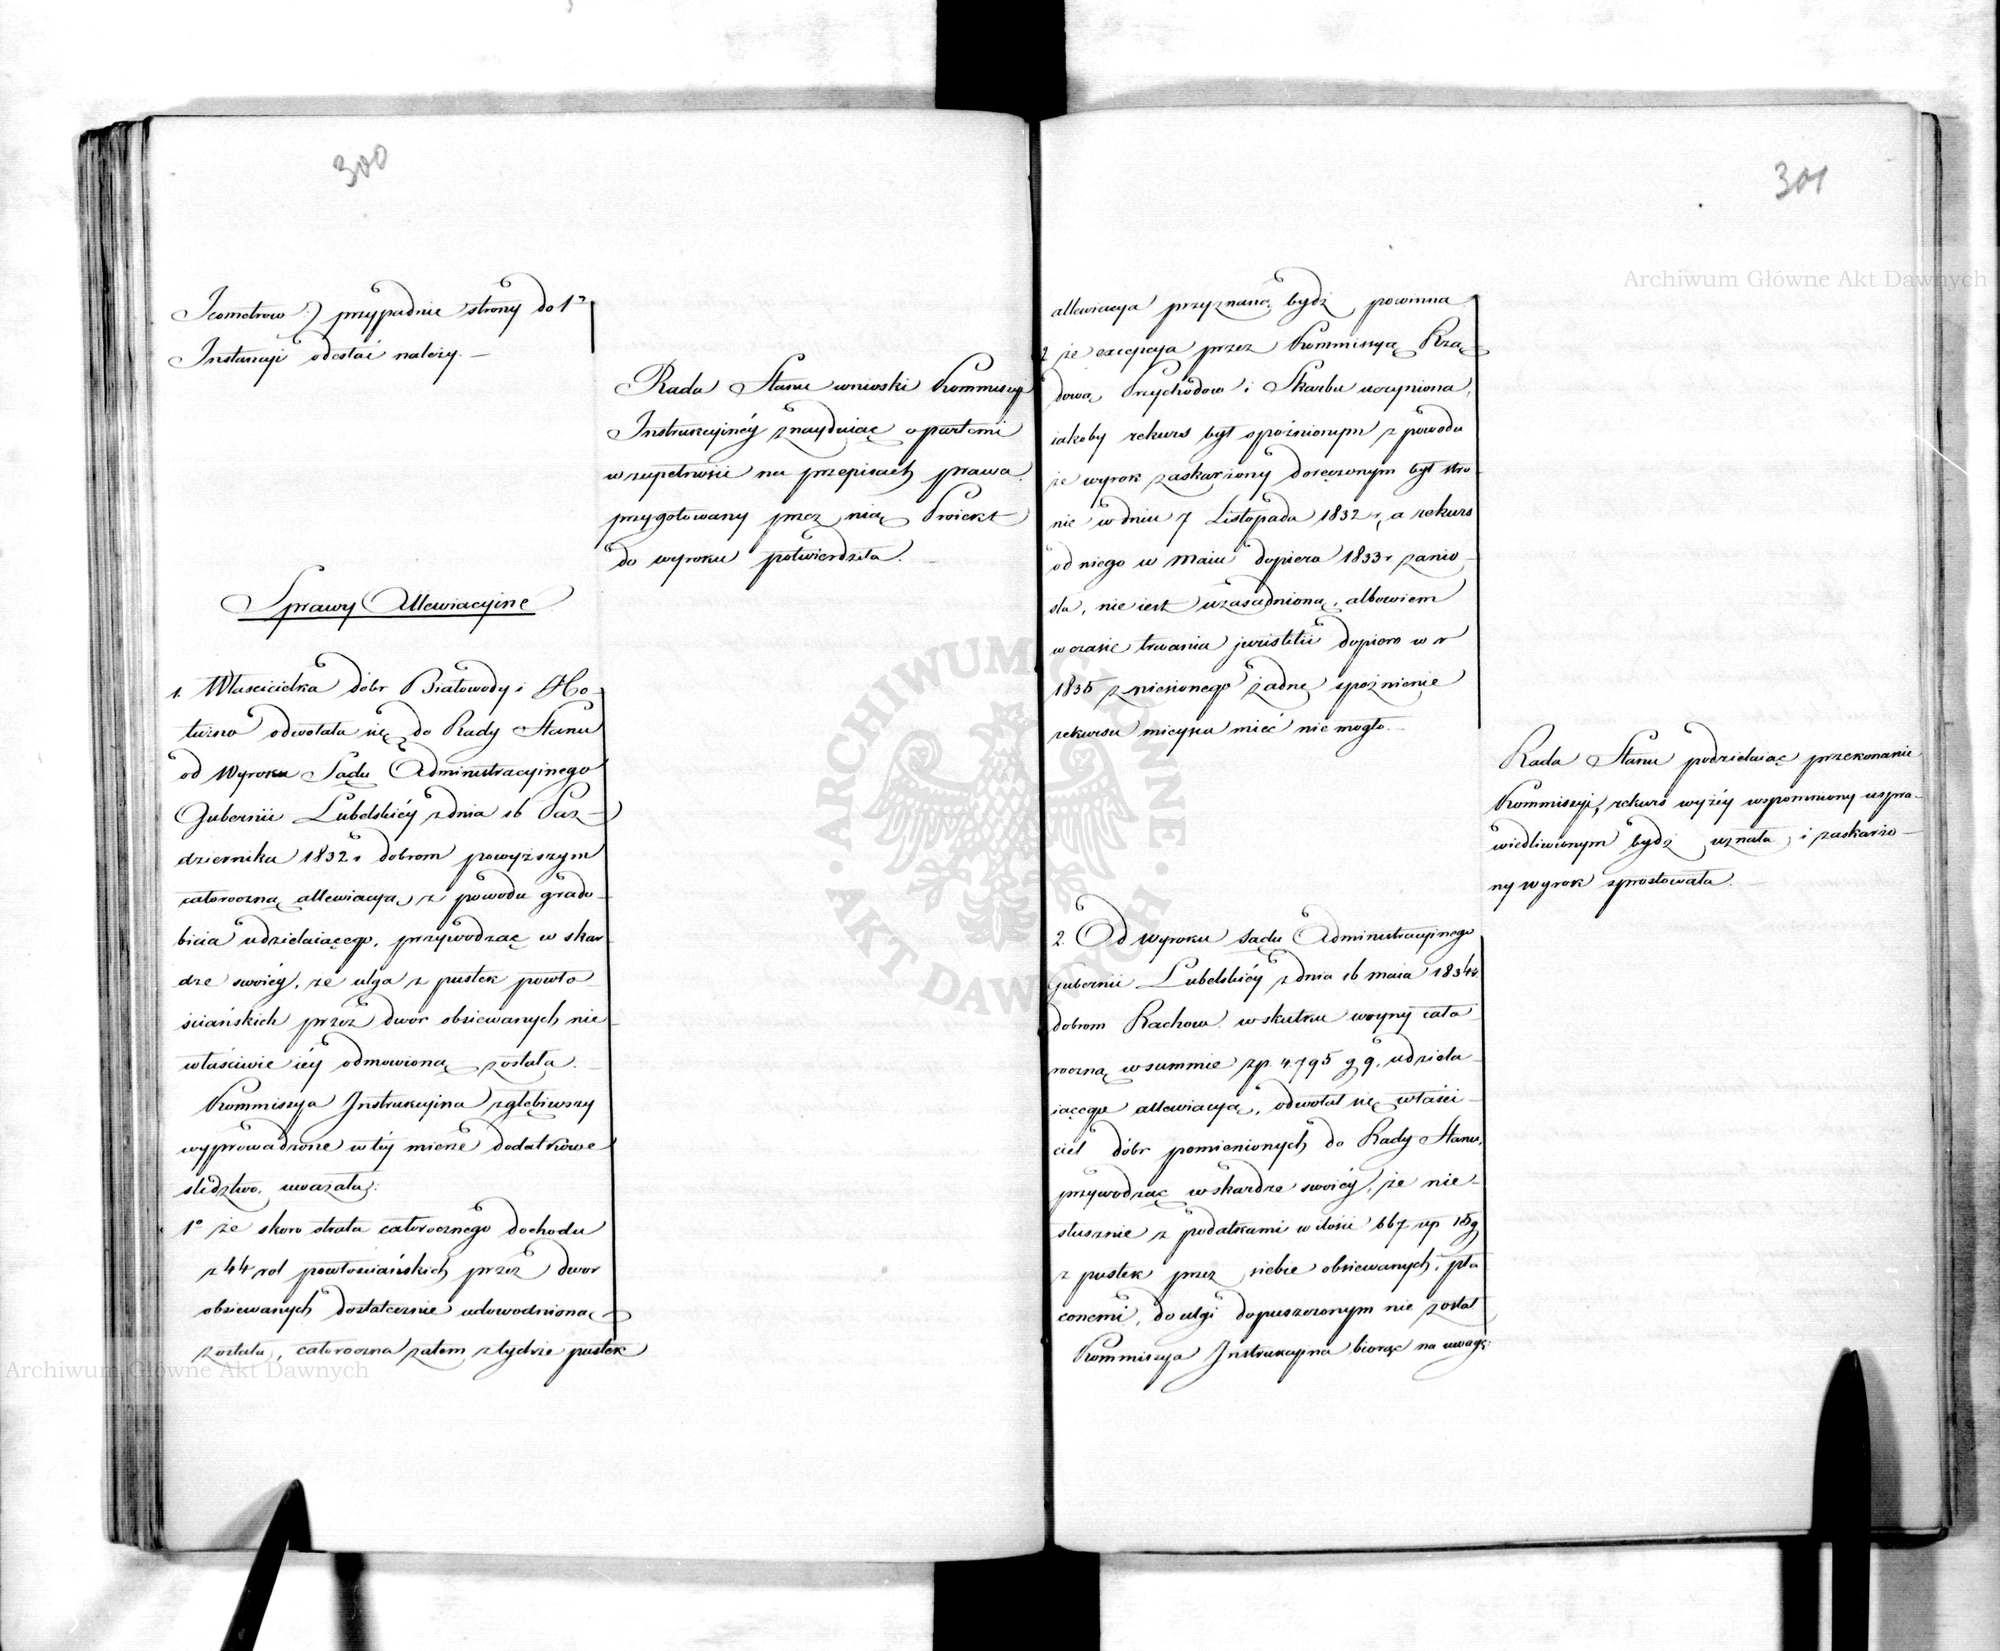 300
Jeometrow) przypadnie strony do 1ey
Instancyi odesłać należy. —
Rada Stanu wnioski Kommissyi
Instrukcyinéy znayduiąc opartemi
w zupełności na przepisach prawa
przygotowany przez nią Proiekt
do wyroku potwierdziła. —
Sprawy Allewiacyine
1. Właścicielka dóbr Białowody i Ho-
tuzno odwołała się do Rady Stanu
od Wyroku Sądu Administracyinego
Gubernii Lubelskiéy z dnia 16 Paz-
dziernika 1832 r dobrom powyższym
całoroczną allewiacyą z powodu grado-
bicia udzielaiącego, przywodząc w skar-
dze swoiéy, że ulga z pustek powło-
ściańskich przez dwor obsiewanych nie-
właściwie iéy odmowioną została. —
Kommissya Instrukcyina zgłębiwszy
wyprowadzone w téy mierze dodatkowe
sledztwo, uważała:
1° że skoro strata całorocznego dochodu
z 44 rol powłościańskich przez dwor
obsiewanych dostatecznie udowodnioną
została, całoroczna zatem z tychże pustek
301
allewiacya przyznaną bydź powinna
2 że excepcya przez Kommissyą Rzą-
dową Przychodow i Skarbu uczyniona,
iakoby rekurs był opóźnionym z powodu
że wyrok zaskarżony doręczonym był stro-
nie w dniu 7 Listopada 1832 r, a rekurs
od niego w Maiu dopiero 1833 r zanio-
sła, nie iest uzasadnioną, albowiem
w czasie trwania juristitii dopiero w r
1835 zniesionego żadne spoźnienie
rekursu mieysca mieć nie mogło. —
Rada Stanu podzielaiąc przekonanie
Kommissyi, rekurs wyżéy wspomniony uspra-
wiedliwionym bydź uznała i zaskarżo-
ny wyrok sprostowała. —
2. Od wyroku Sądu Administracyinego
Gubernii Lubelskiéy z dnia 16 maia 1834 r.
dobrom Rachow w skutku woyny cało-
roczną w summie zp. 4.795 g 9, udziela-
iącego allewiacyą, odwołał się właści-
ciel dóbr pomienionych do Rady Stanu,
przywodząc w skardze swoiéy, że nie-
słusznie z podatkami w ilości 667 zp 15 g
z pustek przez siebie obsiewanych, pła-
conemi, do ulgi dopuszczonym nie został
Kommissya Instrukcyina biorąc na uwagę:
Archiwum Główne Akt Dawnych
Archiwum Główne Akt Dawnych
ARCHIWUM GŁÓWNE AKT DAWNYCH